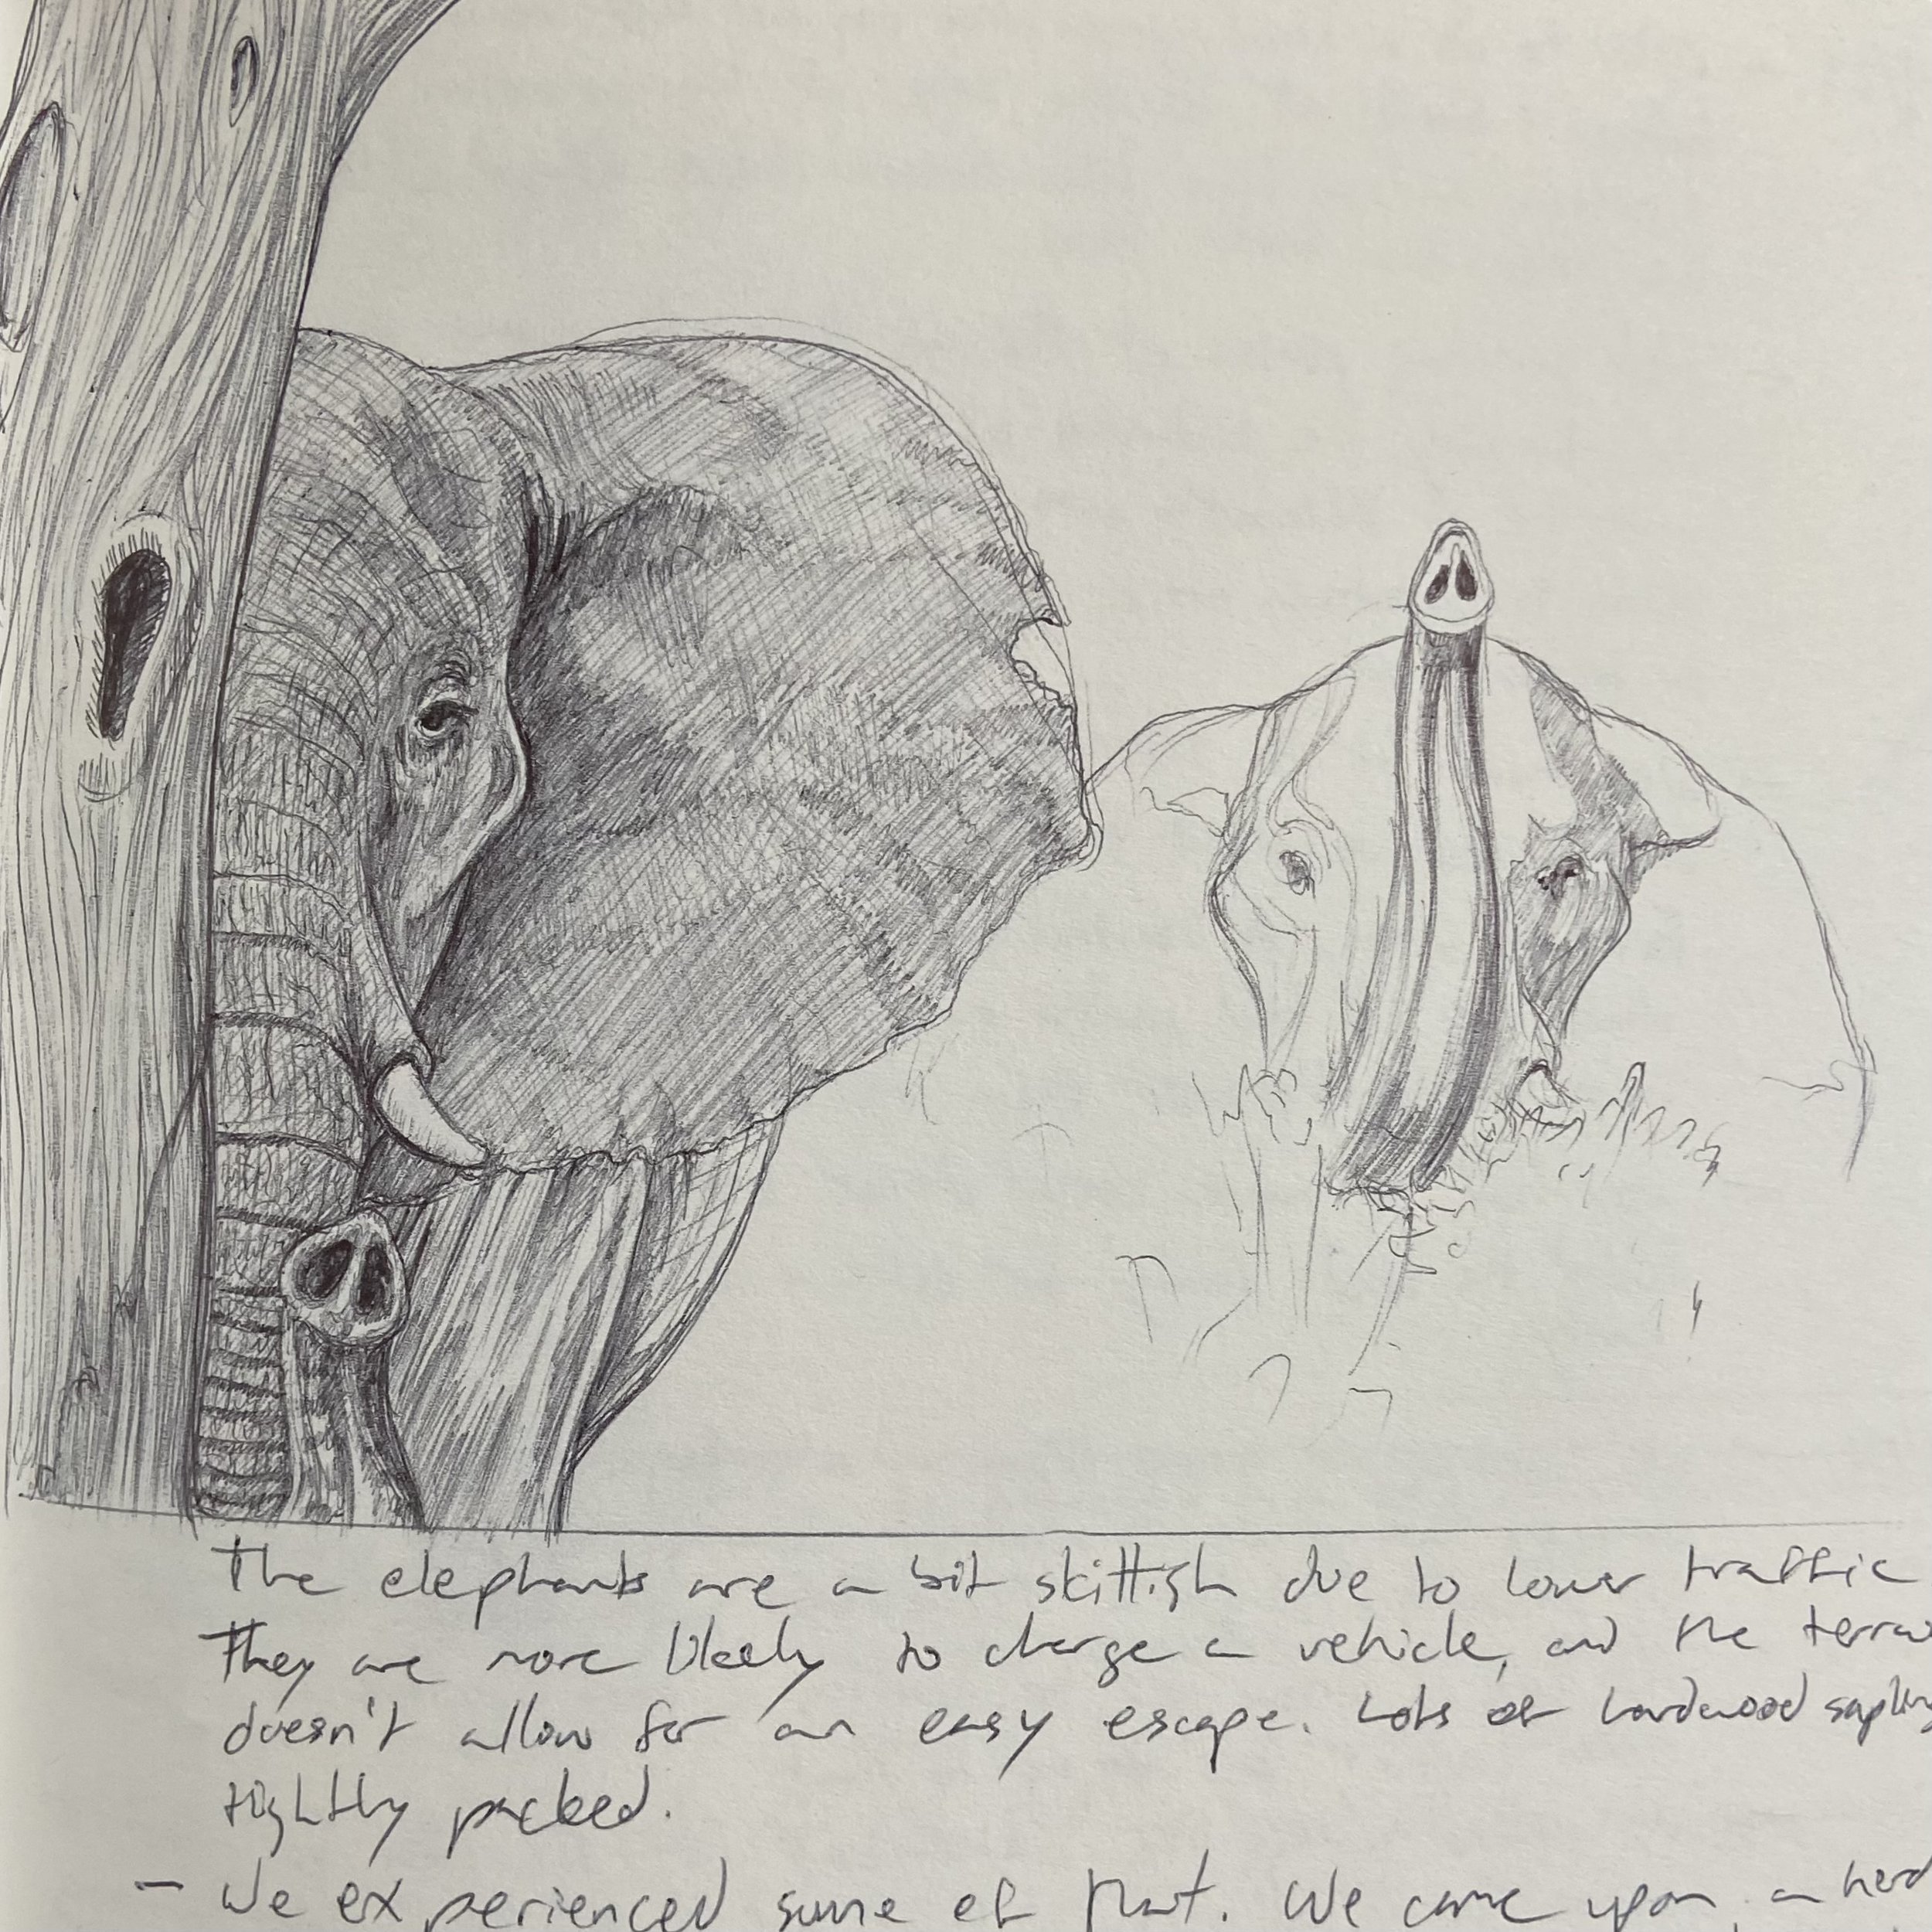 The elephants are a bit skittish due to lower traffic
They are more likely to charge a vehicle, and the
doesn't allow for an easy escape. Lots of hardwood
tightly packed.
- We experienced some of that. We came upon a herd